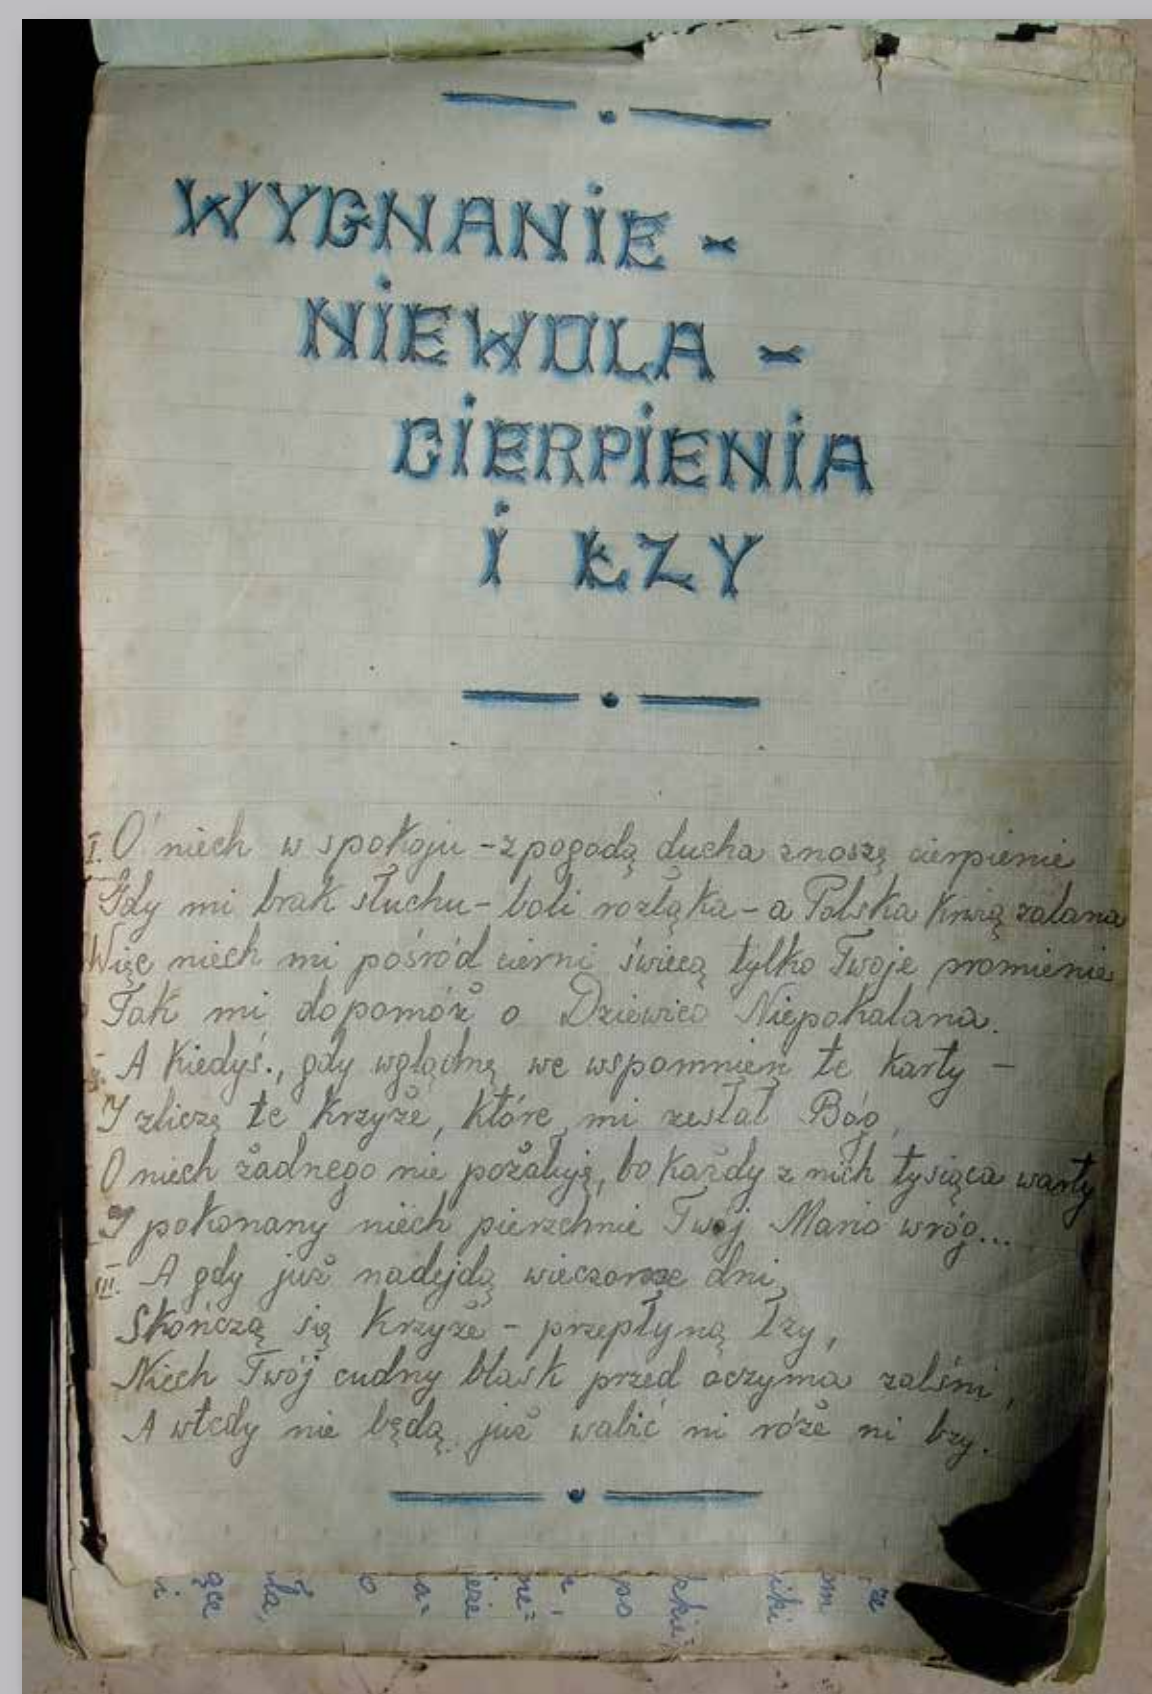 WYGNANIE -
NIEWOLA -
CIERPIENIA
I ŁZY
I. O niech w spokoju - z pogodą ducha znoszę cierpienie
Gdy mi brak słuchu - boli rozłąka - a Polska krwią zalana
Więc niech mi pośród cierni świecą tylko Twoje promienie
Tak mi dopomóż o Dziewico Niepokalana.
A kiedyś., gdy wglądnę we wspomnień te karty -
I zliczę te krzyże, które mi zesłał Bóg,
O niech żadnego nie pożałuję, bo każdy z nich tysiąca warty
I pokonany niech pierzchnie Twój Mario wróg...
III. A gdy już nadejdą wieczorne dni,
Skończą się krzyże - przepłyną łzy,
Niech Twój cudny blask przed oczyma zalśni,
A wtedy nie będą już wabić ni róże ni bzy.